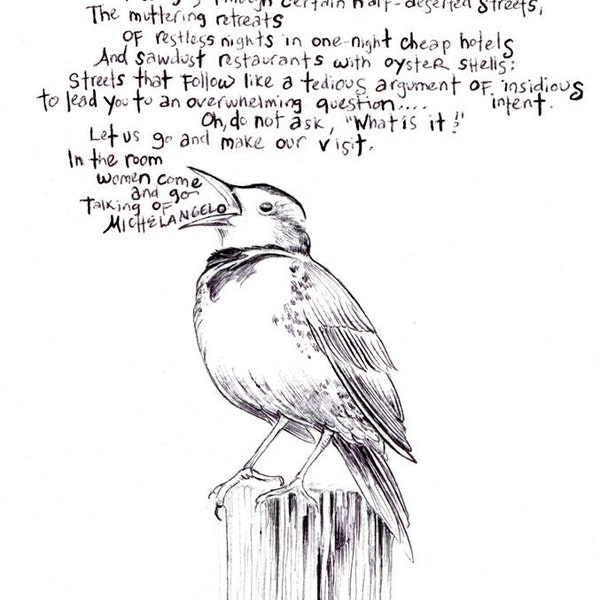 through certain half-deserted streets,
The muttering retreats
Of restless nights in one-night cheap hotels
And sawdust restaurants with oyster shells:
Streets that follow like a tedious argument of insidious
to lead you to an overwhelming question.... intent.
Oh, do not ask, "What is it?"
Let us go and make our visit.
In the room
women come
and go
Talking of
MICHELANGELO